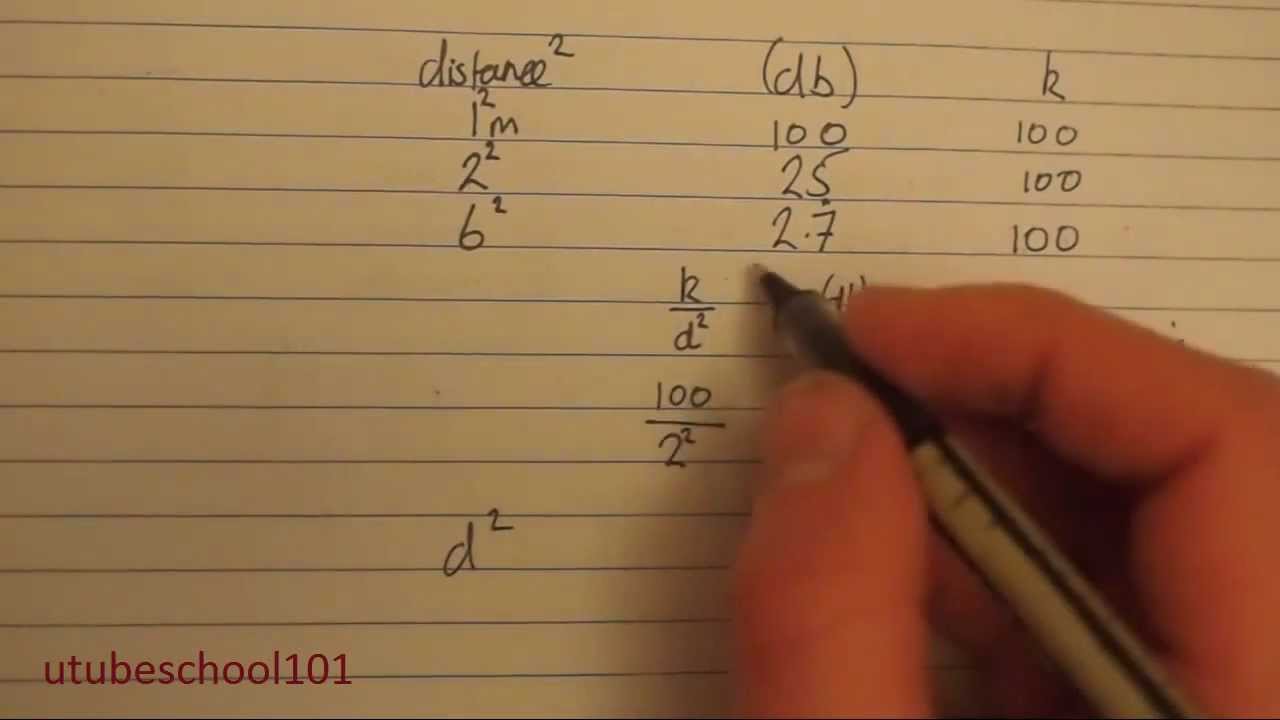 distance² (db) k
1²m 100 100
2² 25 100
6² 2.7̇ 100
k/d² (db)
100/2²
d²
utubeschool101